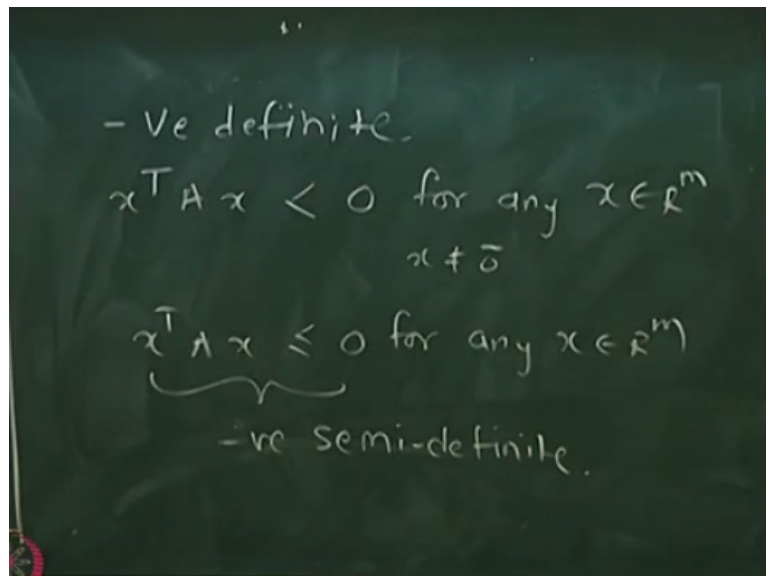 -ve definite.
xᵀ A x < 0 for any x ∈ Rᵐ
x ≠ 0̄
xᵀ A x ≤ 0 for any x ∈ Rᵐ
-ve semi-definite.